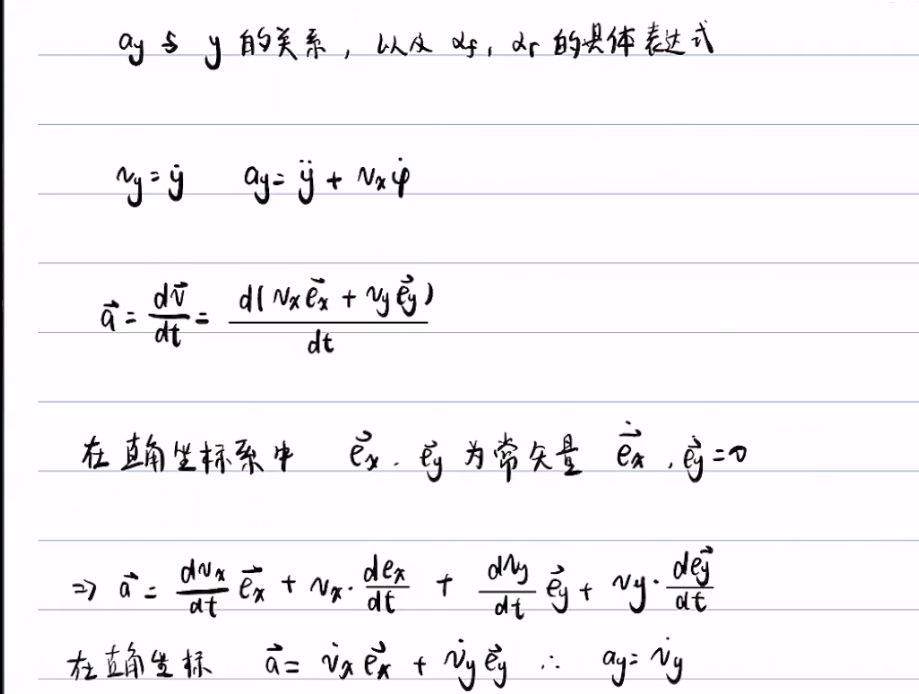 ay 与 y 的关系，以及 αf，αr 的具体表达式
vy = ẏ  ay = ÿ + vxφ̇
a⃗ = dv⃗/dt = d(vxe⃗x + vye⃗y)/dt
在直角坐标系中 e⃗x . e⃗y 为常矢量 ė⃗x , ė⃗y = 0
⇒ a⃗ = dvx/dt e⃗x + vx · dex/dt + dvy/dt e⃗y + vy · de⃗y/dt
在直角坐标 a⃗ = v̇xe⃗x + v̇ye⃗y ∴ ay = v̇y